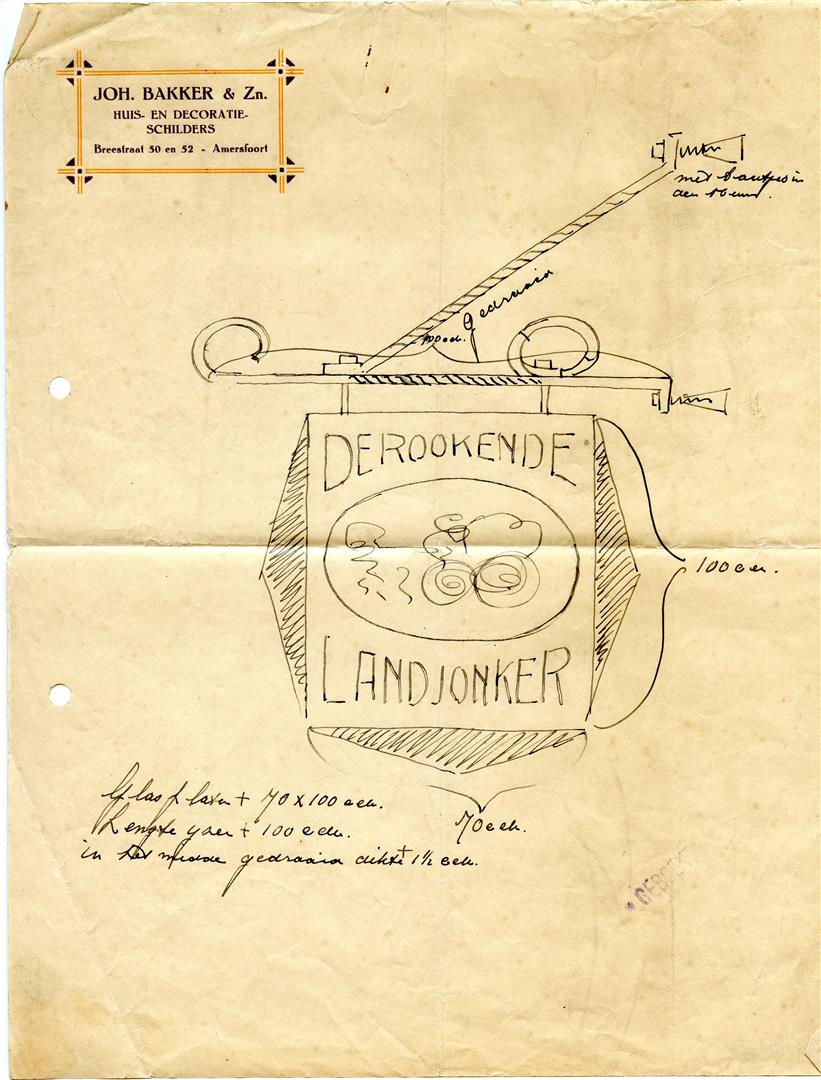 JOH. BAKKER & Zn.
HUIS- EN DECORATIE-
SCHILDERS
Breestraat 50 en 52 - Amersfoort
met
in
den
gedraaid
100 cM.
DE ROOKENDE
100 cM.
LANDJONKER
70 cM.
+ 70 x 100 cM.
Lengte + 100 cM.
in het midde gedraaid dikte + 1½ cM.
GEBOEKT